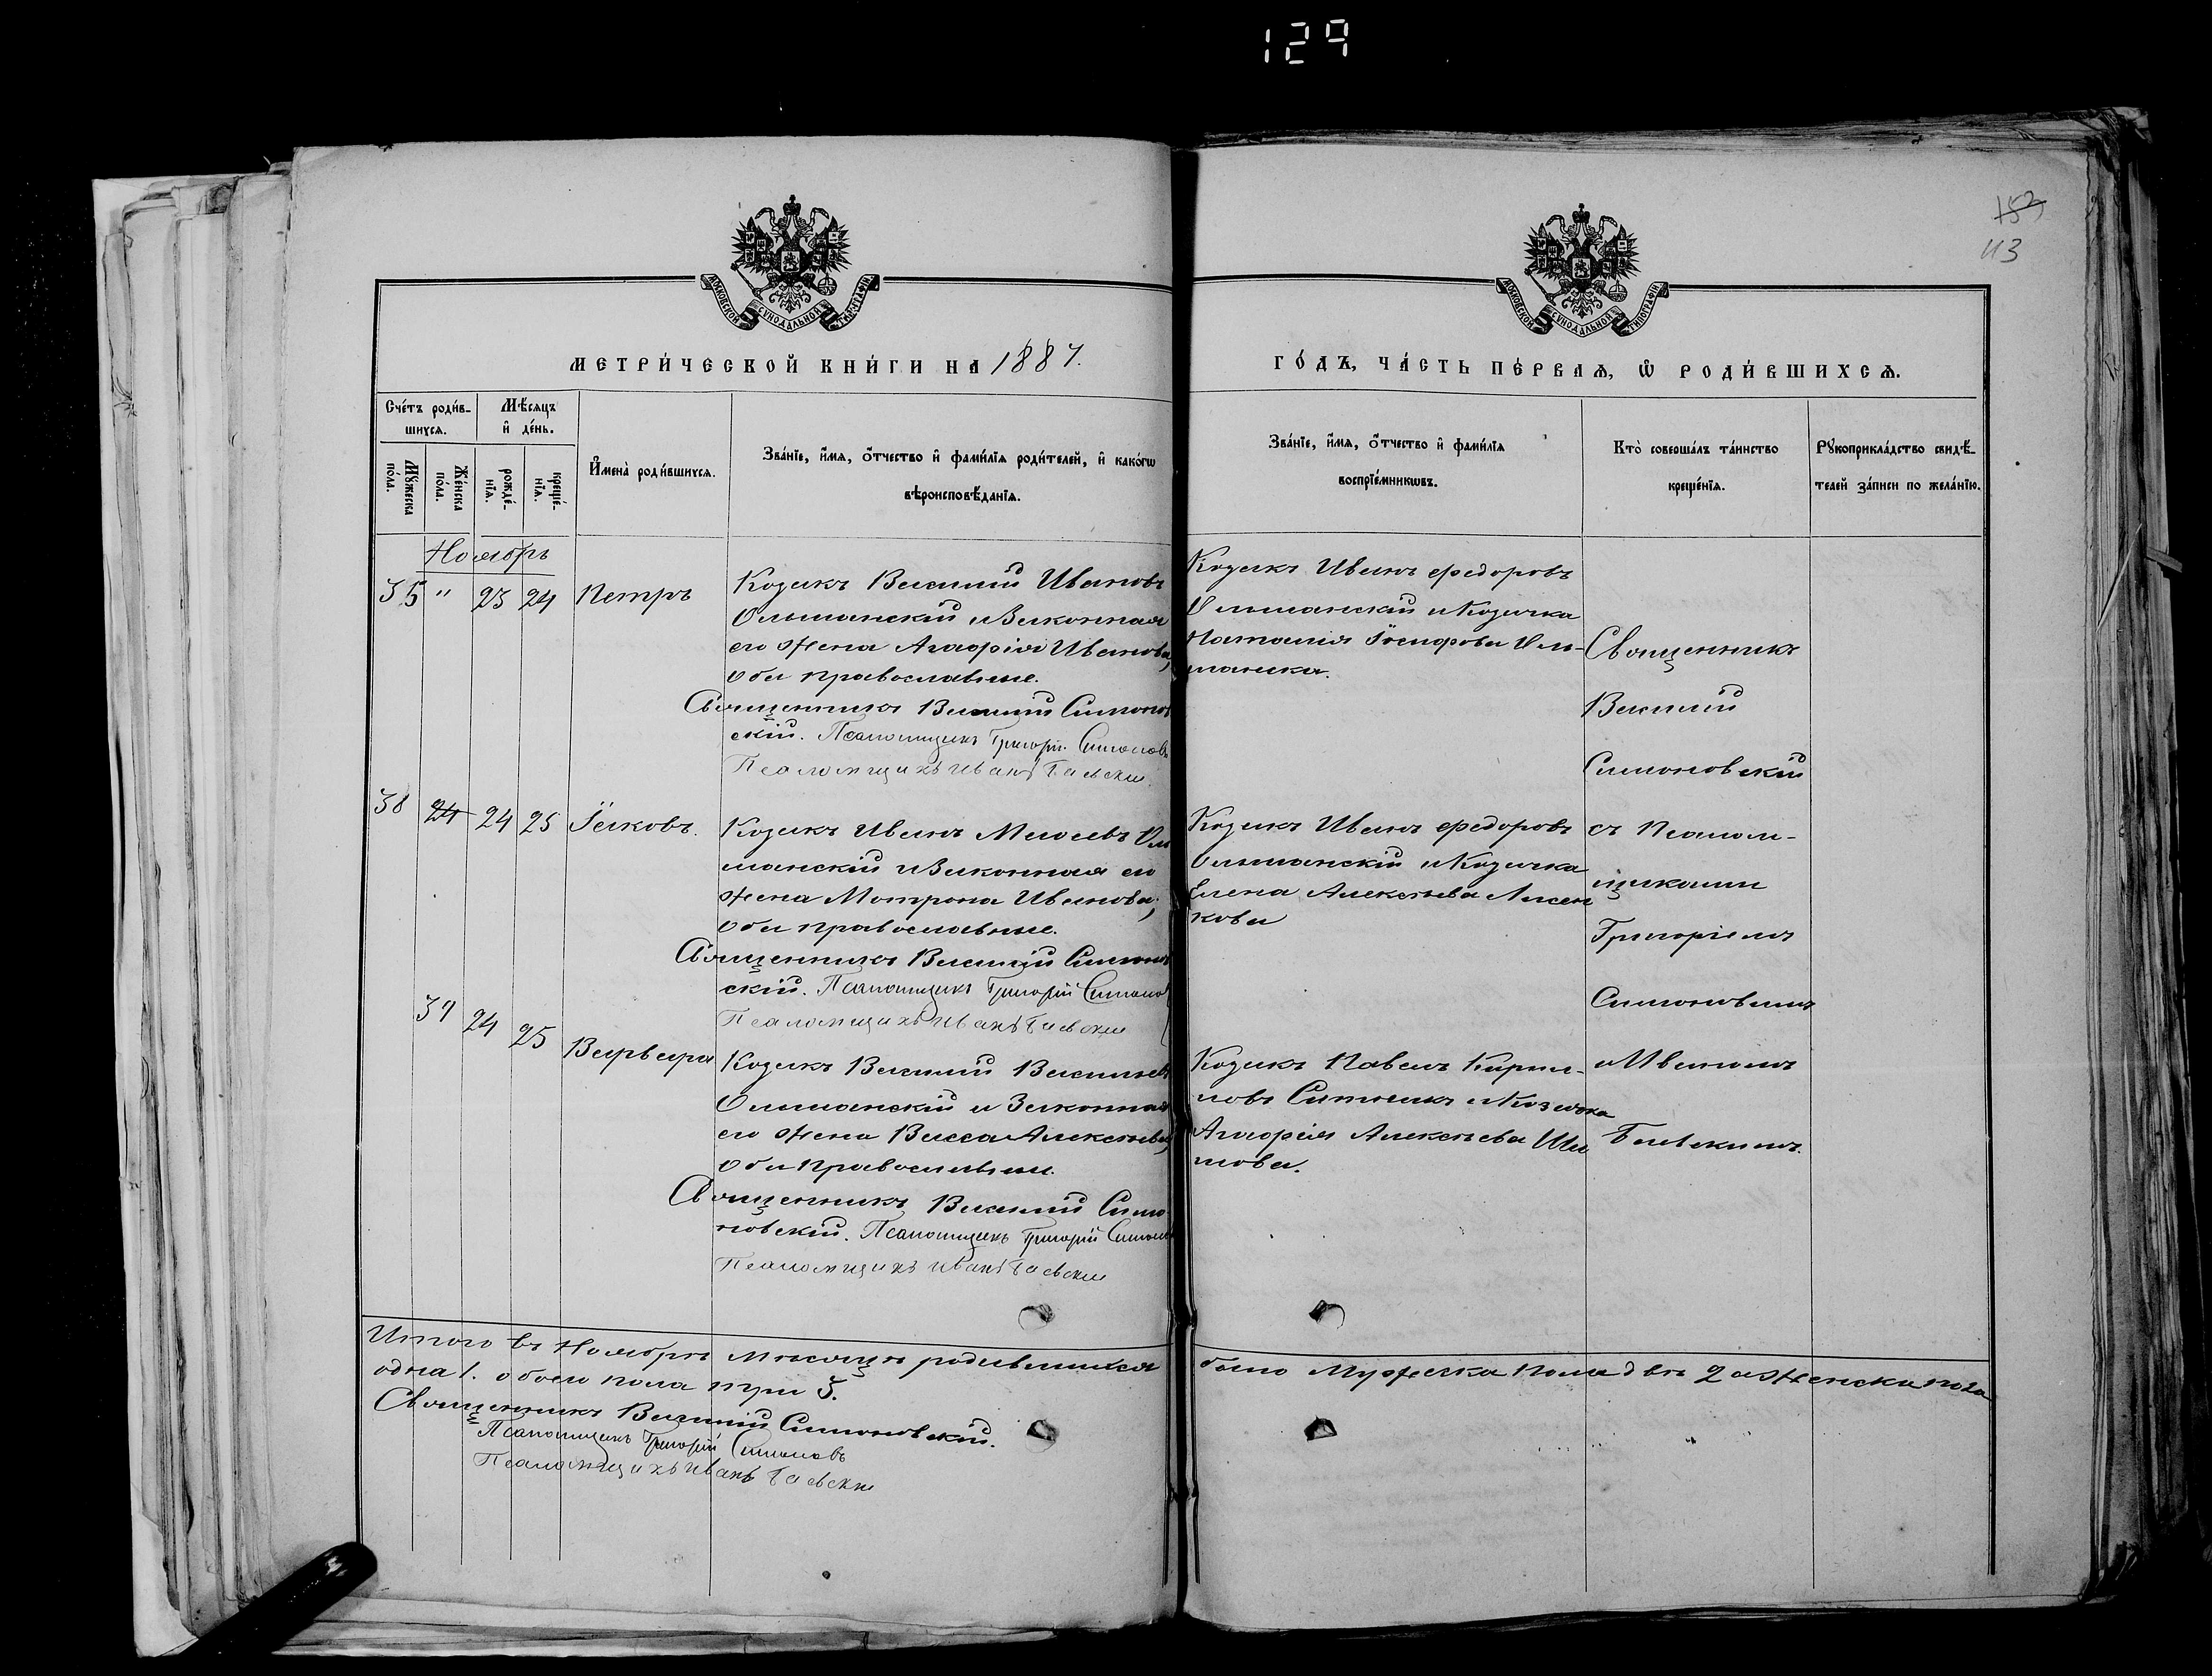 129
153
113
МОСКОВСКОЙ СѴНОДАЛЬНОЙ ТИПОГРАФІИ
МОСКОВСКОЙ СѴНОДАЛЬНОЙ ТИПОГРАФІИ
МЕТРИ́ЧЕСКОЙ КНИ́ГИ НА 1887.
ГО́ДЪ, ЧА́СТЬ ПЕ́РВАѦ, Ѡ РОДИ́ВШИХСѦ.
Сче́тъ роди́в-
шихсѧ.
Мѣ́сѧцъ
и҆ де́нь.
Мꙋ́жеска
по́ла.
Же́нска
по́ла.
рожде́-
нїѧ.
креще́-
нїѧ.
И҆мена̀ роди́вшихсѧ.
Зва́нїе, и҆́мѧ, ѻ҆́тчество и҆ фами́лїѧ роди́телей, и҆ како́гѡ
вѣроисповѣ́данїѧ.
Зва́нїе, и҆́мѧ, ѻ҆́тчество и҆ фами́лїѧ
воспрїе́мникѡвъ.
Кто̀ соверша́лъ та́инство
креще́нїѧ.
Рꙋкоприкла́дство свидѣ́-
телей за́писи по жела́нїю.
Ноябрь
35 " 23 24 Петръ
Козакъ Василий Ивановъ
Ольшанскій и Законная
его жена Агафія Иванова,
оба православные.
Священникъ Василій Симонов
скій. Псаломщикъ Григорій Симоновъ
Псаломщикъ Иванъ Баевскій
Козакъ Иванъ Федоровъ
Ольшанскій и Козачка
Наталія Іосифова Оль-
шанска.
Священникъ
Василій
Симоновскій
съ Псалом-
щиками
Григоріемъ
Симоновымъ
и Иваномъ
Баевскимъ.
38 24 24 25 Іаковъ.
Козакъ Иванъ Оль
шанскій и Законная его
жена Мотрона Иванова;
оба православные.
Священникъ Василій Симонов
скій. Псаломщикъ Григорій Симонов
Псаломщикъ Иванъ Баевскій
Козакъ Иванъ Федоровъ
Ольшанскій и Козачка
Елена Алексѣева Лисен
кова
39 24 25 Варвара
Козакъ Василій Васильевъ
Ольшанскій и Законная
его жена Васса Алексѣева,
оба Православные.
Священникъ Василій Симо
новскій. Псаломщикъ Григорій Симонов
Псаломщикъ Иванъ Баевскій
Козакъ Павелъ Кирил-
ловъ и Козачка
Агафія Алексѣева Ши
лова.
Итого въ Ноябрѣ мѣсяцѣ родившихся было Мужеска пола двѣ 2 а Женска пола
одна 1. обоего пола три 3.
Священникъ Василій Симоновскій.
Псаломщикъ Григорій Симоновъ
Псаломщикъ Иванъ Баевскій